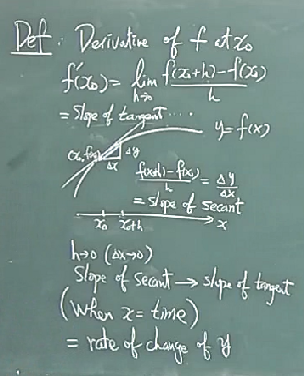 Def. Derivative of f at x₀
f'(x₀) = lim h→0 f(x₀+h) - f(x₀) / h
= slope of tangent ....
y = f(x)
(x₀, f(x₀)) Δy
Δx
f(x₀+h) - f(x₀) / h = Δy / Δx
= slope of secant
x₀ x₀+h x
h→0 (Δx→0)
Slope of secant → slope of tangent
(When x = time)
= rate of change of y